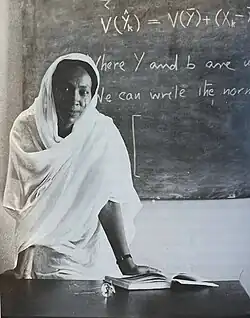 V(Ŷₖ) = V(Ȳ) + (Xₖ -
Where Y and b are
We can write the norm